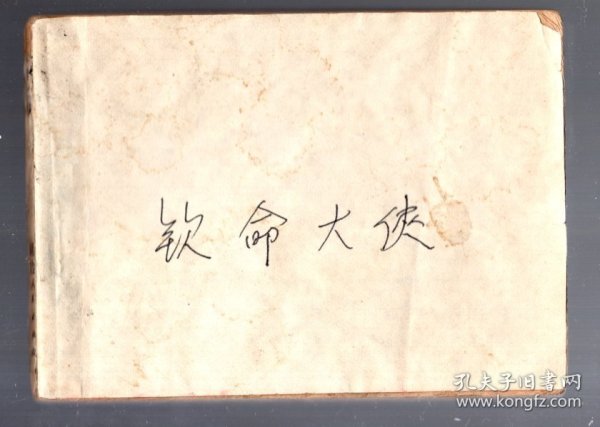 钦命大侠
孔夫子旧书网
www.kongfz.com